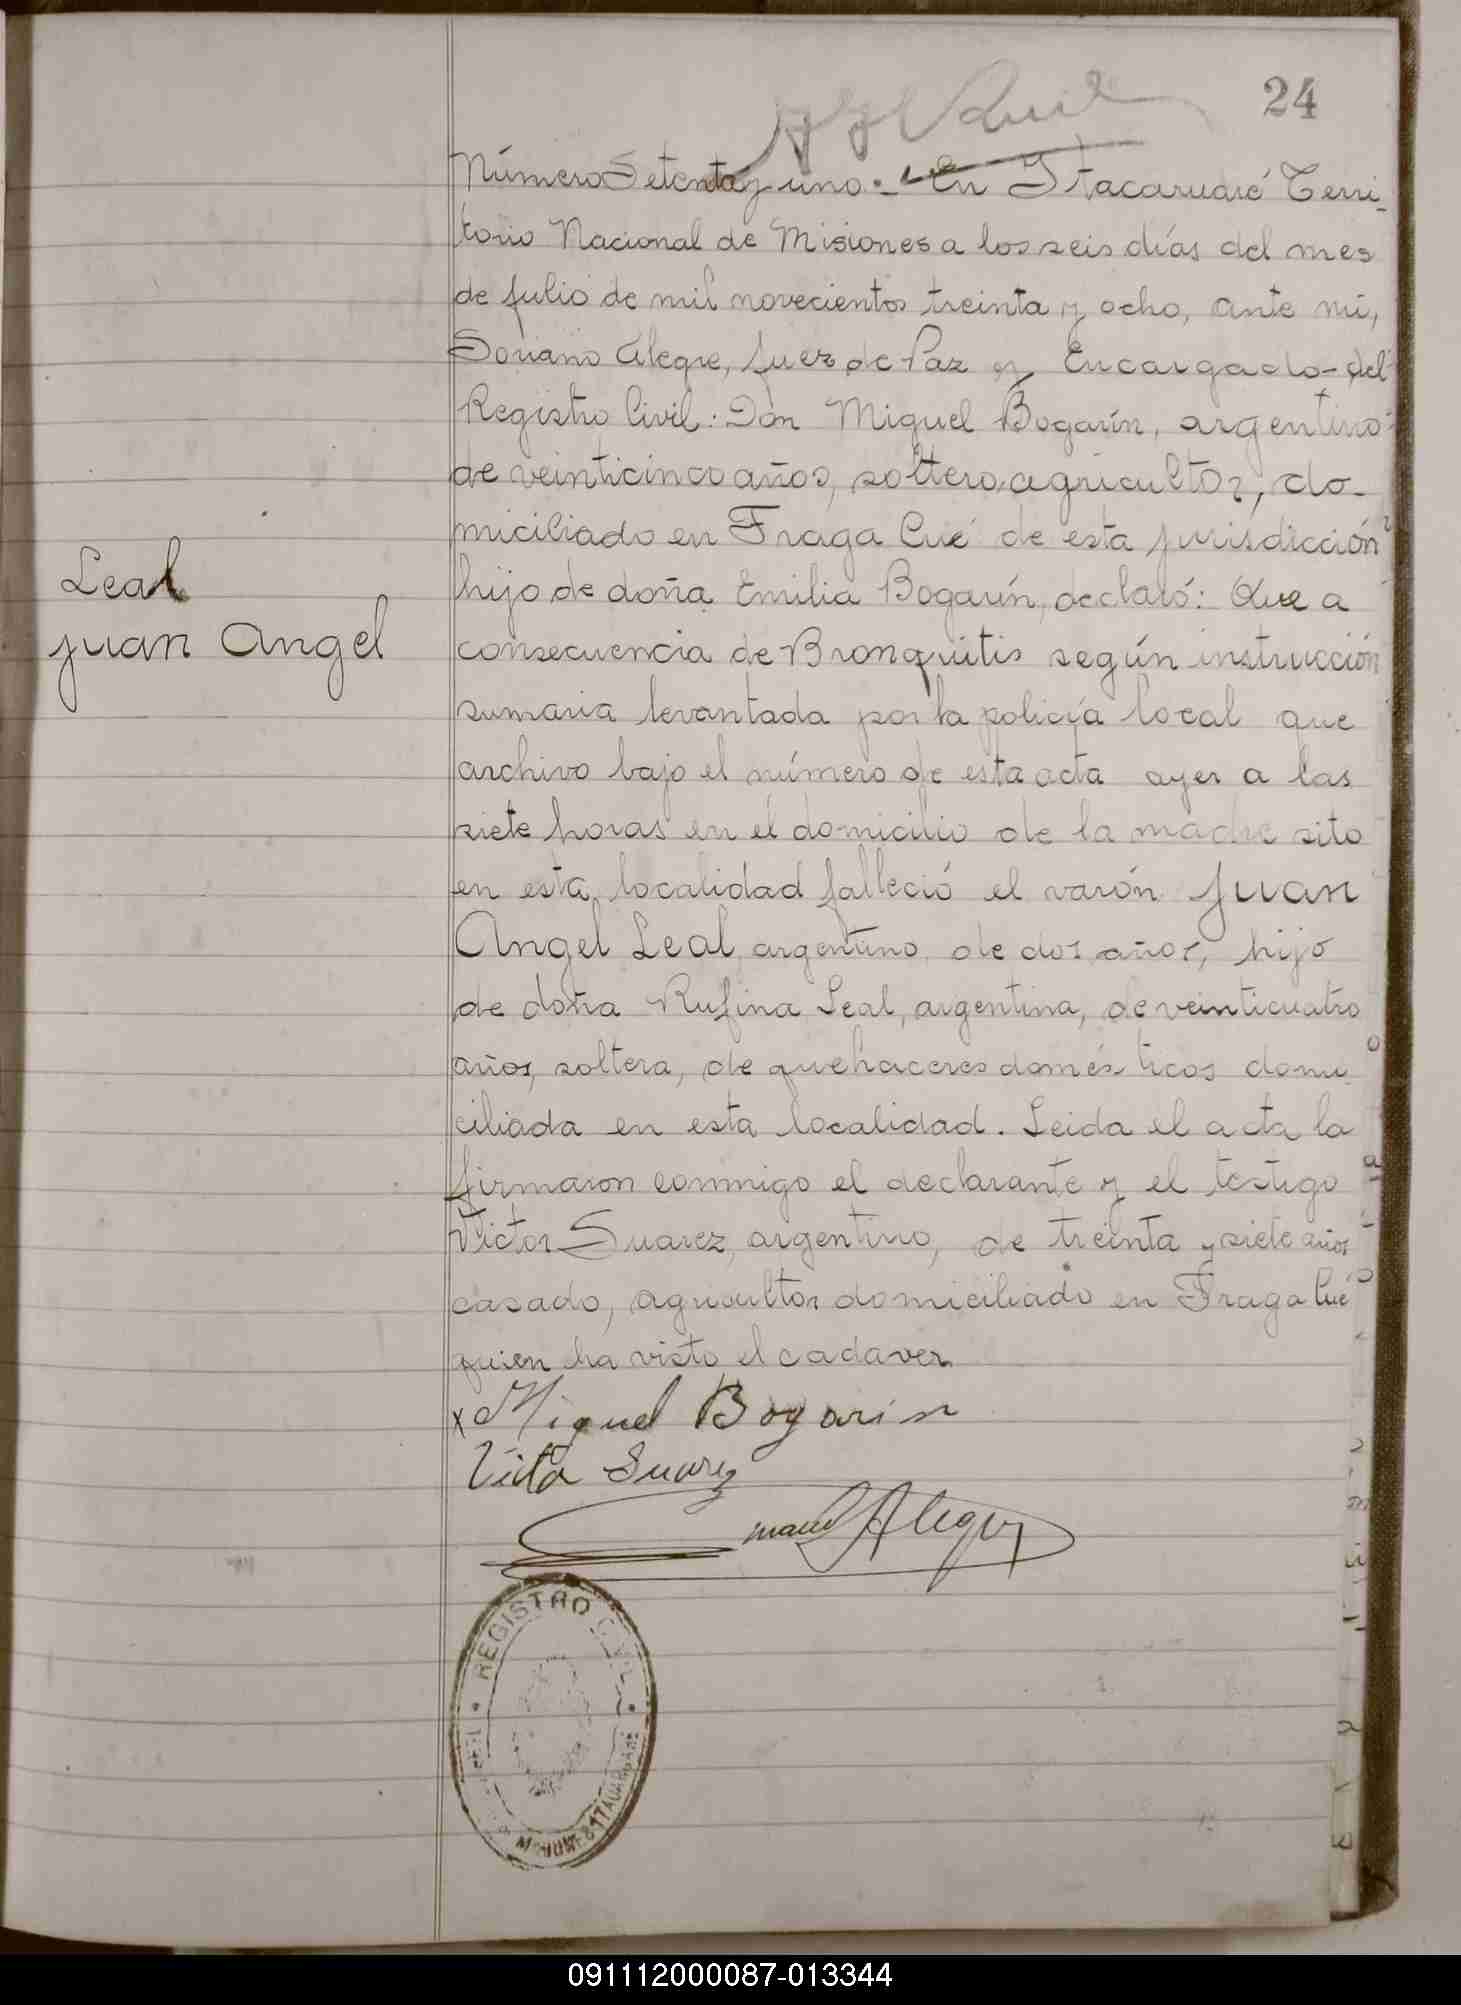 24
Número Setenta y uno:- En Itacaruaré Terri-
torio Nacional de Misiones a los seis días del mes
de Julio de mil novecientos treinta y ocho, ante mi,
Soriano Alegre, Juez de Paz y Encargado del
Registro Civil: Don Miguel Bogarín, argentino
de veinticinco años, soltero, agricultor, do-
miciliado en Fraga Cué de esta jurisdicción
Leal
Juan Angel
hijo de doña Emilia Bogarín, declaró: Que a
consecuencia de Bronquitis según instrucción
sumaria levantada por la policía local que
archivo bajo el número de esta acta ayer a las
siete horas en el domicilio de la madre sito
en esta localidad falleció el varón Juan
Angel Leal, argentino, de dos años, hijo
de doña Rufina Leal, argentina, de veinticuatro
años, soltera, de quehaceres domésticos domi
ciliada en esta localidad. Leida el acta la
firmaron conmigo el declarante y el testigo
Victor Suarez, argentino, de treinta y siete años
casado, agricultor domiciliado en Fraga Cué
quien ha visto el cadaver.
x Miguel Bogarin
Victor Suarez
Alegre
REGISTRO CIVIL
091112000087-013344